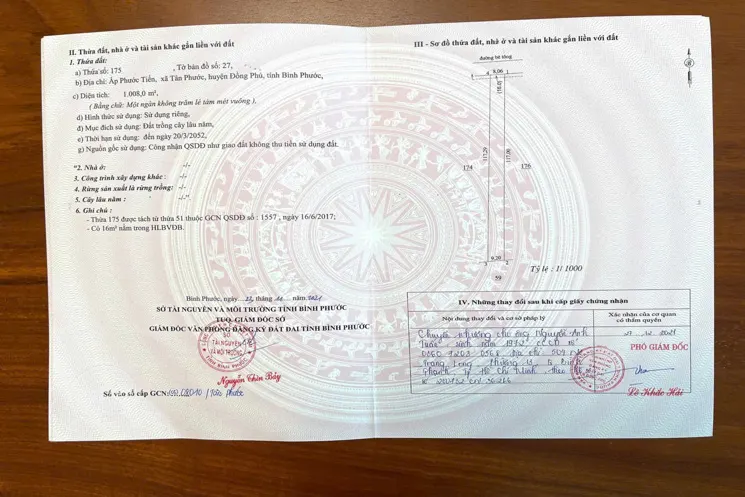 II. Thửa đất, nhà ở và tài sản khác gắn liền với đất
1. Thửa đất:
a) Thửa số: 175 , Tờ bản đồ số: 27,
b) Địa chỉ: Ấp Phước Tiến, xã Tân Phước, huyện Đồng Phú, tỉnh Bình Phước,
c) Diện tích: 1.008,0 m²,
( Bằng chữ: Một ngàn không trăm lẻ tám mét vuông ),
d) Hình thức sử dụng: Sử dụng riêng,
đ) Mục đích sử dụng: Đất trồng cây lâu năm,
e) Thời hạn sử dụng: đến ngày 20/3/2052,
g) Nguồn gốc sử dụng: Công nhận QSDĐ như giao đất không thu tiền sử dụng đất.
"2. Nhà ở: -/-
3. Công trình xây dựng khác : -/-
4. Rừng sản xuất là rừng trồng: -/-
5. Cây lâu năm: -/-"
6. Ghi chú :
- Thửa 175 được tách từ thửa 51 thuộc GCN QSDĐ số : 1557 , ngày 16/6/2017;
- Có 16m² nằm trong HLBVĐB.
Bình Phước, ngày tháng năm 2021
SỞ TÀI NGUYÊN VÀ MÔI TRƯỜNG TỈNH BÌNH PHƯỚC
TUQ. GIÁM ĐỐC SỞ
GIÁM ĐỐC VĂN PHÒNG ĐĂNG KÝ ĐẤT ĐAI TỈNH BÌNH PHƯỚC
SỞ
TÀI NGUYÊN
VÀ MÔI TRƯỜNG
Nguyễn Chín Bảy
Số vào sổ cấp GCN: Tân Phước
III - Sơ đồ thửa đất, nhà ở và tài sản khác gắn liền với đất
đường bê tông
4 8,06 1
(10,0)
117,29
117,00
174
176
3 9,20 2
59
Tỷ lệ : 1/ 1000
IV. Những thay đổi sau khi cấp giấy chứng nhận
Nội dung thay đổi và cơ sở pháp lý
Xác nhận của cơ quan
có thẩm quyền
Chuyển nhượng cho ông Nguyễn Anh
sinh năm CCCD số
địa chỉ: 509
Trang Long, Phường 13, Q. Bình
Thạnh, Hồ Chí Minh theo
27 12 2021
PHÓ GIÁM ĐỐC
Lê Khắc Hải